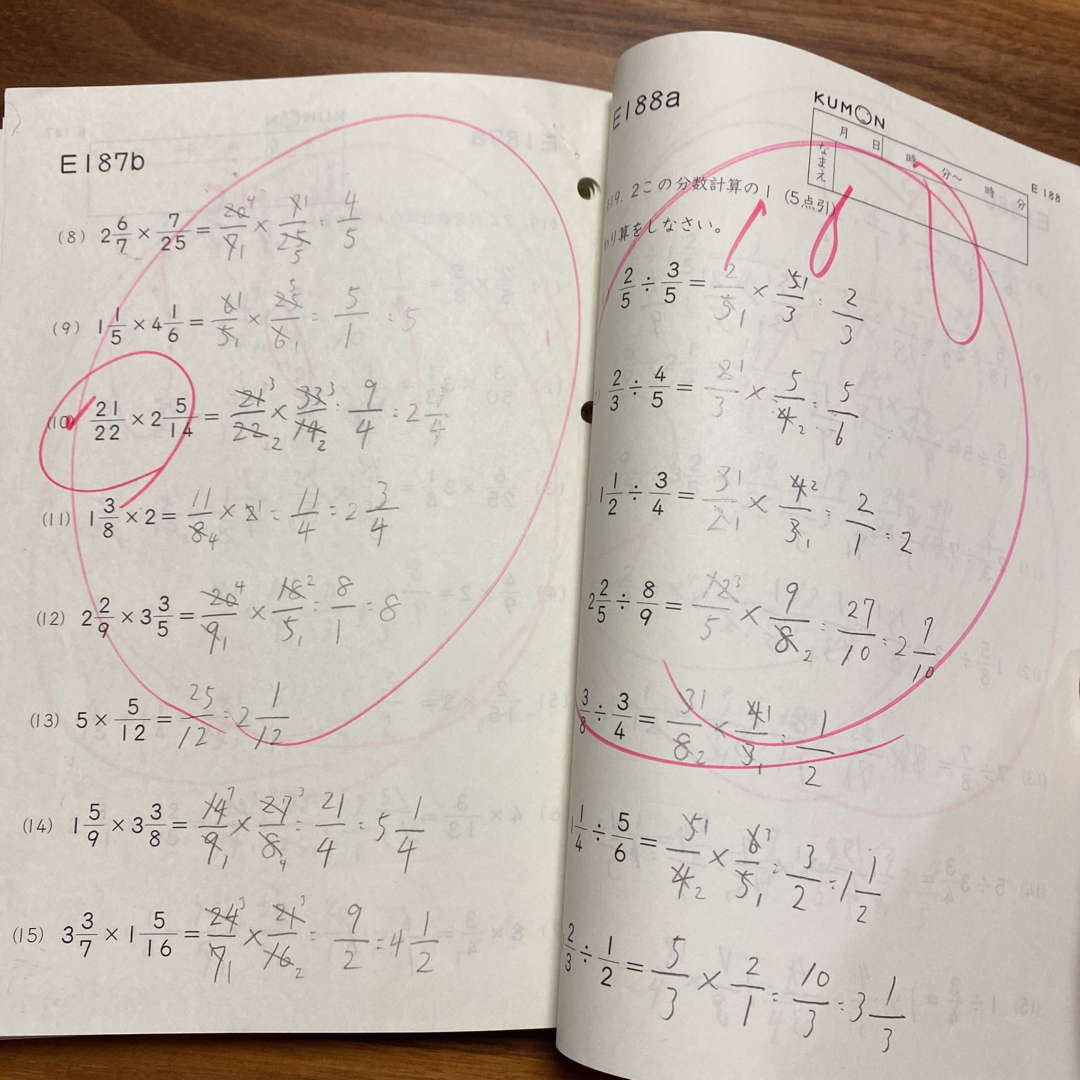 E187b
(8) 2 6/7 × 7/25 = 20/7 4 1 × 7/25 1 5 = 4/5
(9) 1 1/5 × 4 1/6 = 6/5 1 1 × 25/6 5 1 = 5/1 = 5
(10) 21/22 × 2 5/14 = 21/22 3 2 × 33/14 3 2 = 9/4 = 2 1/4
(11) 1 3/8 × 2 = 11/8 4 × 2 1 = 11/4 = 2 3/4
(12) 2 2/9 × 3 3/5 = 20/9 4 1 × 18/5 2 1 = 8/1 = 8
(13) 5 × 5/12 = 25/12 = 2 1/12
(14) 1 5/9 × 3 3/8 = 14/9 7 1 × 27/8 3 4 = 21/4 = 5 1/4
(15) 3 3/7 × 1 5/16 = 24/7 3 1 × 21/16 3 2 = 9/2 = 4 1/2
E188a
KUMON
月 日 時 分〜 時 分
なまえ
E 188
2この分数計算の1 (5点引)
わり算をしなさい。
2/5 ÷ 3/5 = 2/5 1 × 5/3 1 = 2/3
2/3 ÷ 4/5 = 2/3 1 × 5/4 2 = 5/6
1 1/2 ÷ 3/4 = 3/2 1 1 × 4/3 2 1 = 2/1 = 2
2 2/5 ÷ 8/9 = 12/5 3 × 9/8 2 = 27/10 = 2 7/10
3/8 ÷ 3/4 = 3/8 1 2 × 4/3 1 1 = 1/2
1 1/4 ÷ 5/6 = 5/4 1 2 × 6/5 3 1 = 3/2 = 1 1/2
2/3 ÷ 1/2 = 5/3 × 2/1 = 10/3 = 3 1/3